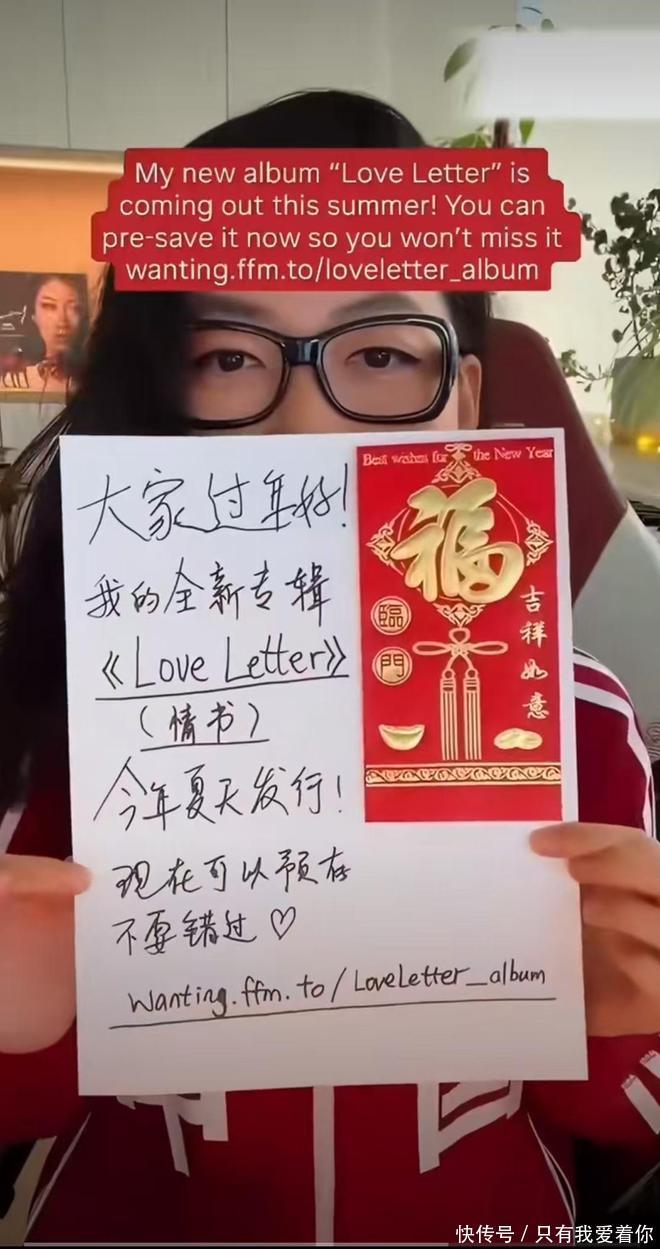 My new album “Love Letter” is
coming out this summer! You can
pre-save it now so you won’t miss it
wanting.ffm.to/loveletter_album
大家过年好!
我的全新专辑
《Love Letter》
(情书)
今年夏天发行!
现在可以预存
不要错过♡
wanting.ffm.to/LoveLetter_album
Best wishes for the New Year
福
臨
門
吉祥如意
中国
快传号 / 只有我爱着你